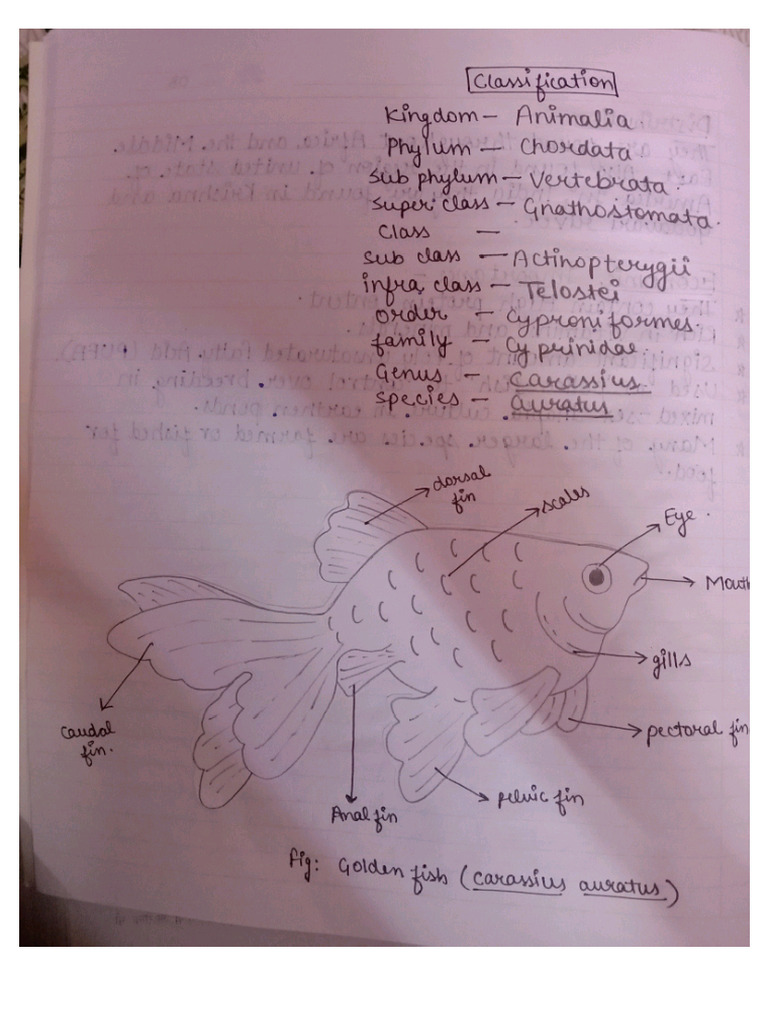 Classification
Kingdom - Animalia
Phylum - Chordata
Sub phylum - Vertebrata
Super class - Gnathostomata.
Class -
Sub class - Actinopterygii
infra class - Telostei
order - Cyproniformes.
family - Cyprinidae
Genus - Carassius
species - auratus
dorsal
fin
scales
Eye.
Mouth
gills
pectoral fin
caudal
fin.
pelvic fin
Anal fin
fig: Golden fish (carassius auratus)